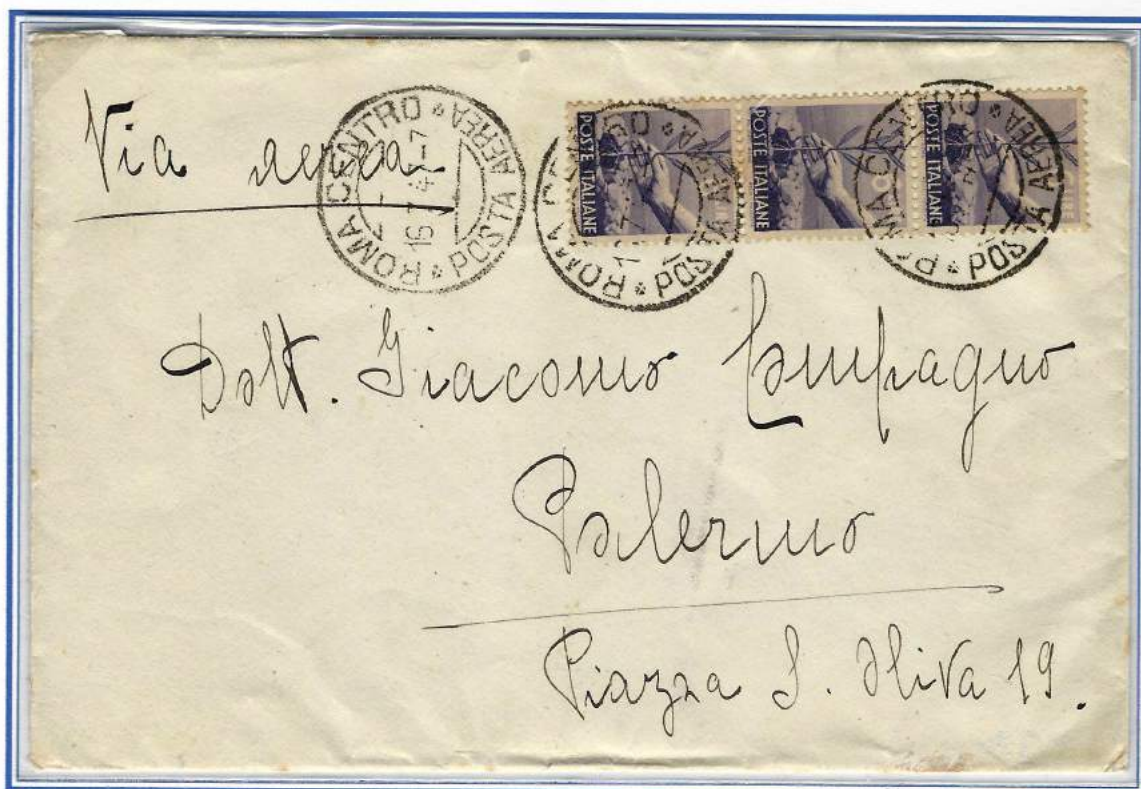 Via aerea
ROMA CENTRO * POSTA AEREA *
16.7.47-7
POSTE ITALIANE
POSTE ITALIANE
POSTE ITALIANE
ROMA * POSTA
* POSTA AEREA *
Dott. Giacomo Compagno
Palermo
Piazza S. Oliva 19.